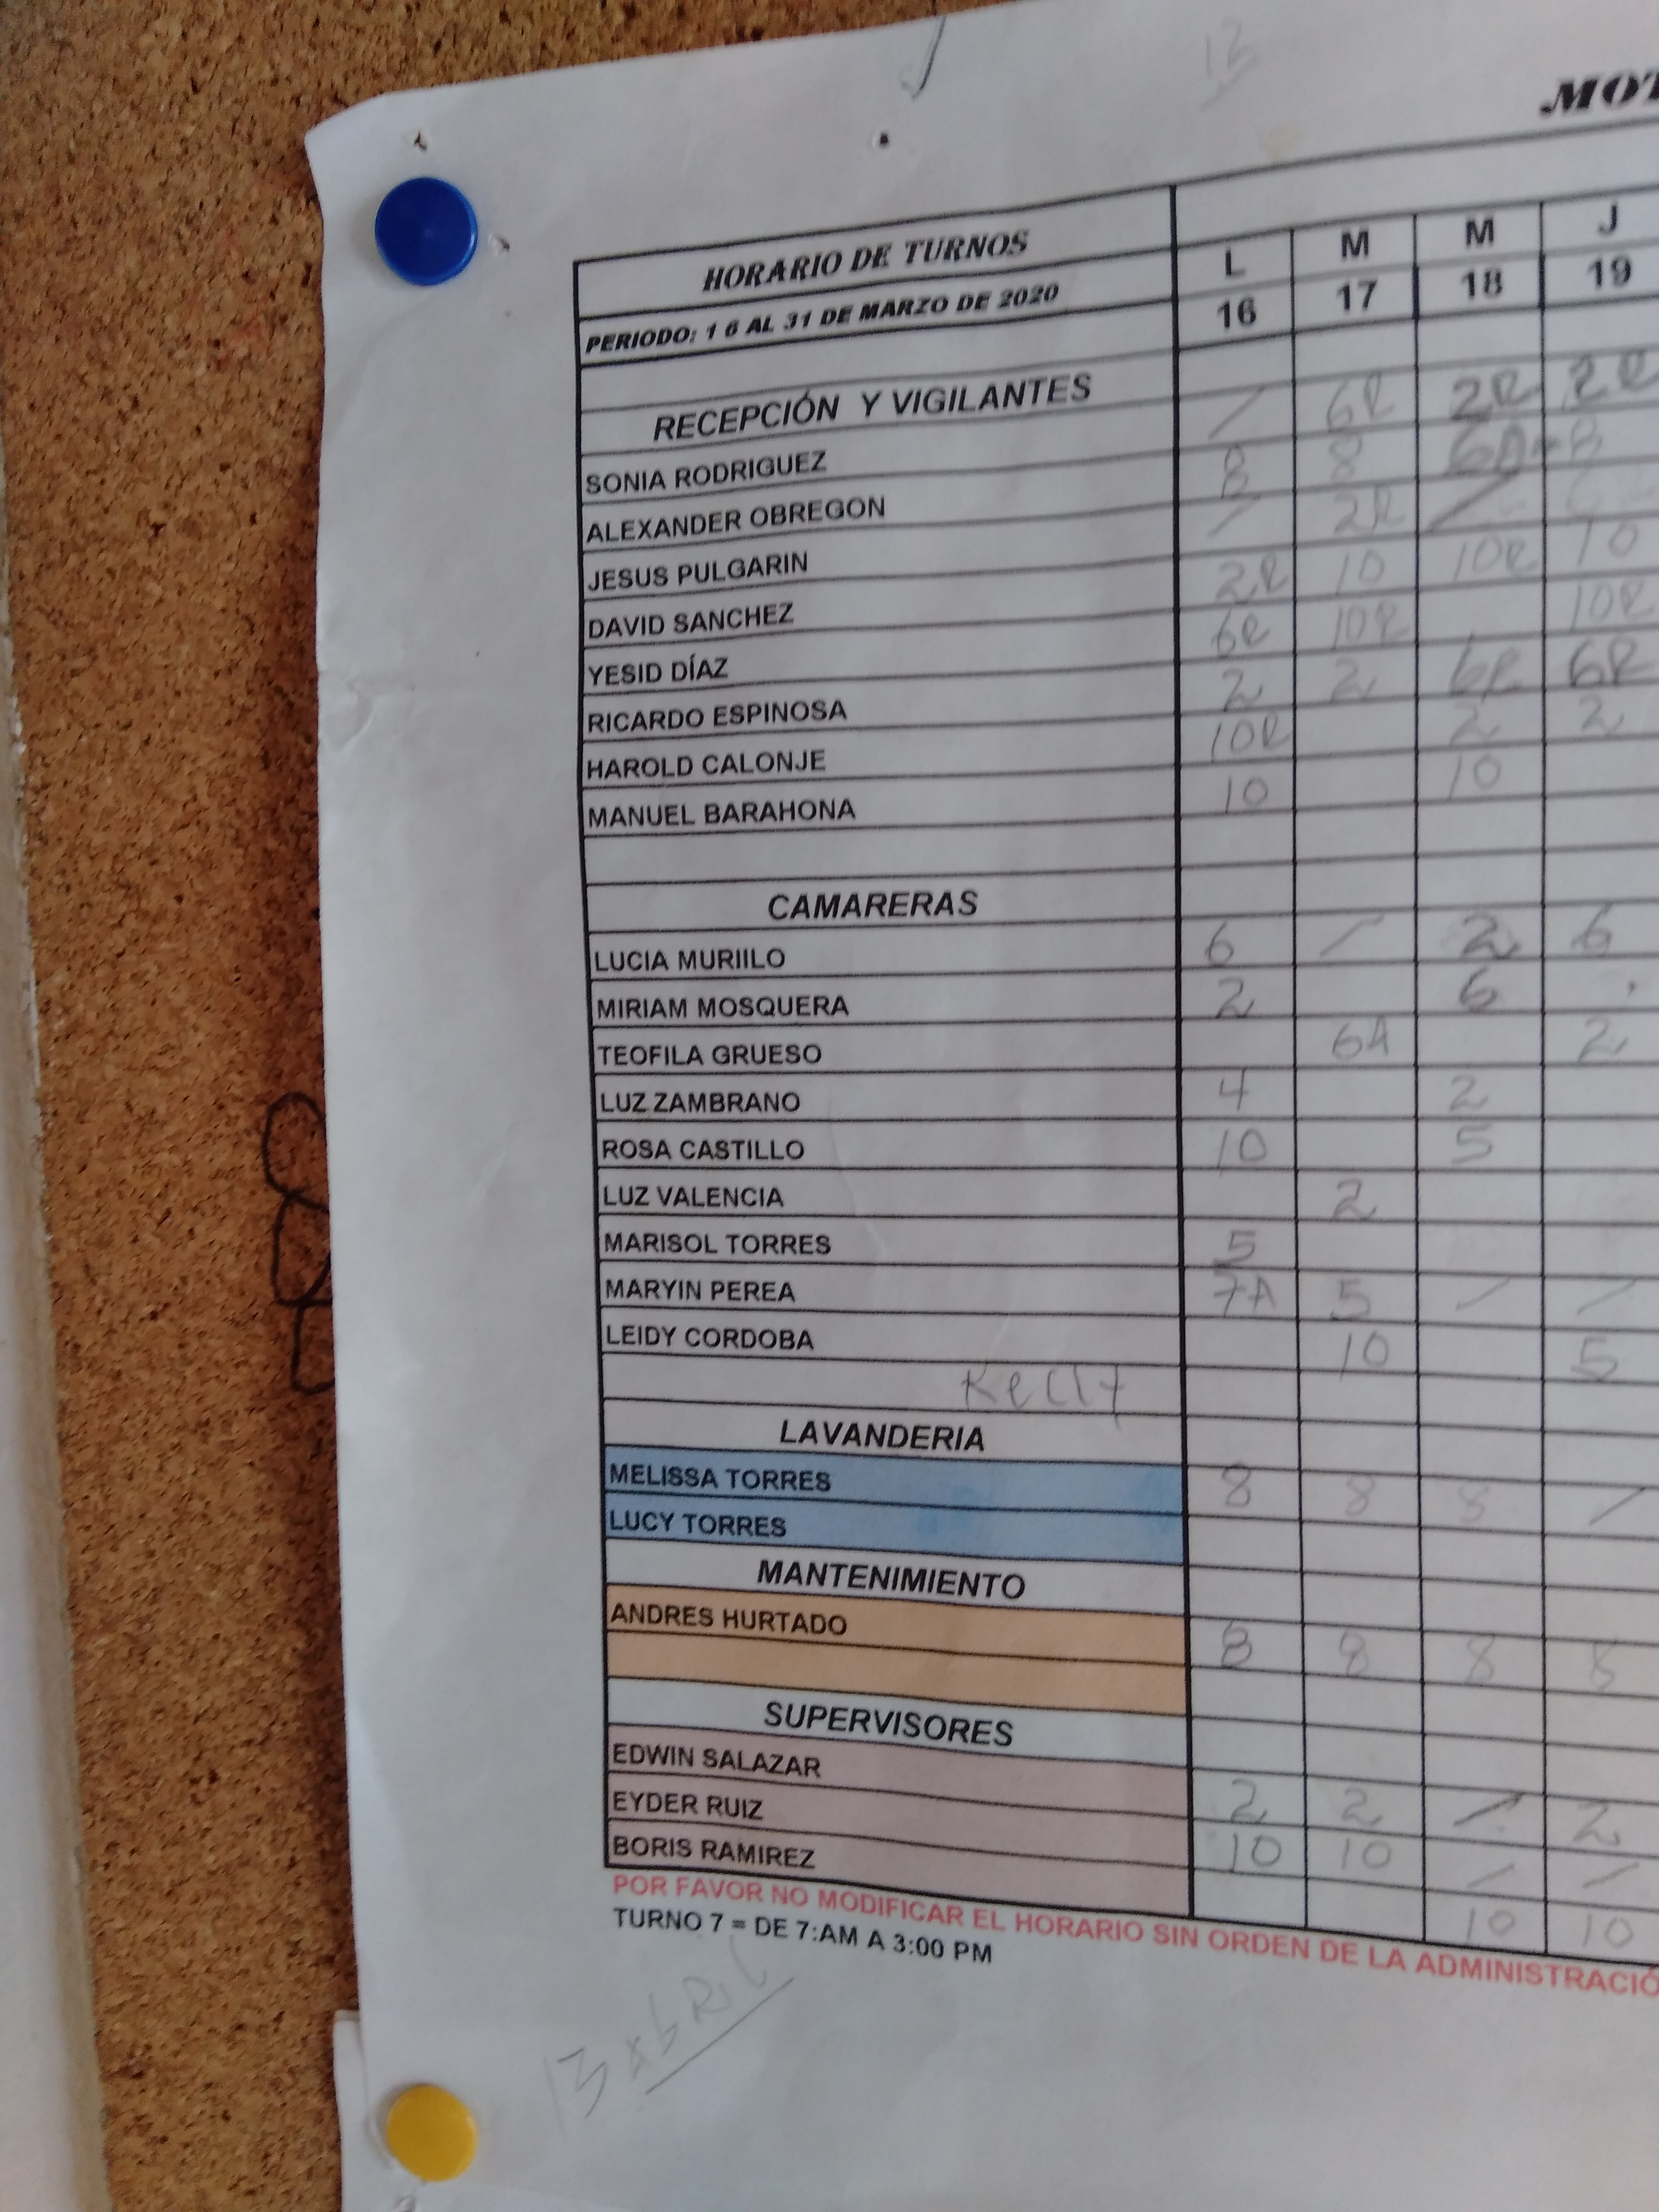 12
MOT
HORARIO DE TURNOS L M M J
PERIODO: 1 6 AL 31 DE MARZO DE 2020 16 17 18 19
RECEPCIÓN Y VIGILANTES
SONIA RODRIGUEZ / 6R 2R 2R
ALEXANDER OBREGON 8 8 6A - 8
JESUS PULGARIN / 2R /
DAVID SANCHEZ 2R 10 10R 10
YESID DÍAZ 6R 10R 10R
RICARDO ESPINOSA 2 2 6R 6R
HAROLD CALONJE 10R 2 2
MANUEL BARAHONA 10 10
CAMARERAS
LUCIA MURIILO 6 / 2 6
MIRIAM MOSQUERA 2 6
TEOFILA GRUESO 6A 2
LUZ ZAMBRANO 4 2
ROSA CASTILLO 10 5
LUZ VALENCIA 2
MARISOL TORRES 5
MARYIN PEREA 7A 5 / /
LEIDY CORDOBA 10 5
Kelly
LAVANDERIA
MELISSA TORRES 8 8 8 /
LUCY TORRES
MANTENIMIENTO
ANDRES HURTADO 8 8 8 8
SUPERVISORES
EDWIN SALAZAR 2 2 / 2
EYDER RUIZ 10 10 / /
BORIS RAMIREZ 10 10
POR FAVOR NO MODIFICAR EL HORARIO SIN ORDEN DE LA ADMINISTRACIÓ
TURNO 7 = DE 7:AM A 3:00 PM
13